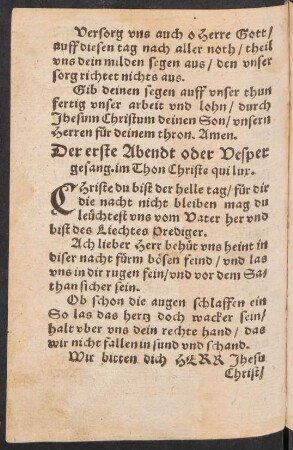 Versorg vns auch o Herre Gott/
auff diesen tag nach aller noth/ theil
vns dein milden segen aus/ den vnser
sorg richtet nichts aus.
Gib deinen segen auff vnser thun
fertig vnser arbeit vnd lohn/ durch
Jhesum Christum deinen Son/ vnsern
Herren für deinem thron. Amen.
Der erste Abendt oder Vesper
gesang. im Thon Christe qui lux.
CHriste du bist der helle tag/ für dir
die nacht nicht bleiben mag du
leüchtest vns vom Vater her vnd
bist des Liechtes Prediger.
Ach lieber Herr behüt vns heint in
diser nacht fürm bösen feind/ vnd las
vns in dir rugen fein/ vnd vor dem Sa-
than sicher sein.
Ob schon die augen schlaffen ein
So las das hertz doch wacker sein/
halt vber vns dein rechte hand/ das
wir nicht fallen in sund vnd schand.
Wir bitten dich HERR Jhesu
Christ/